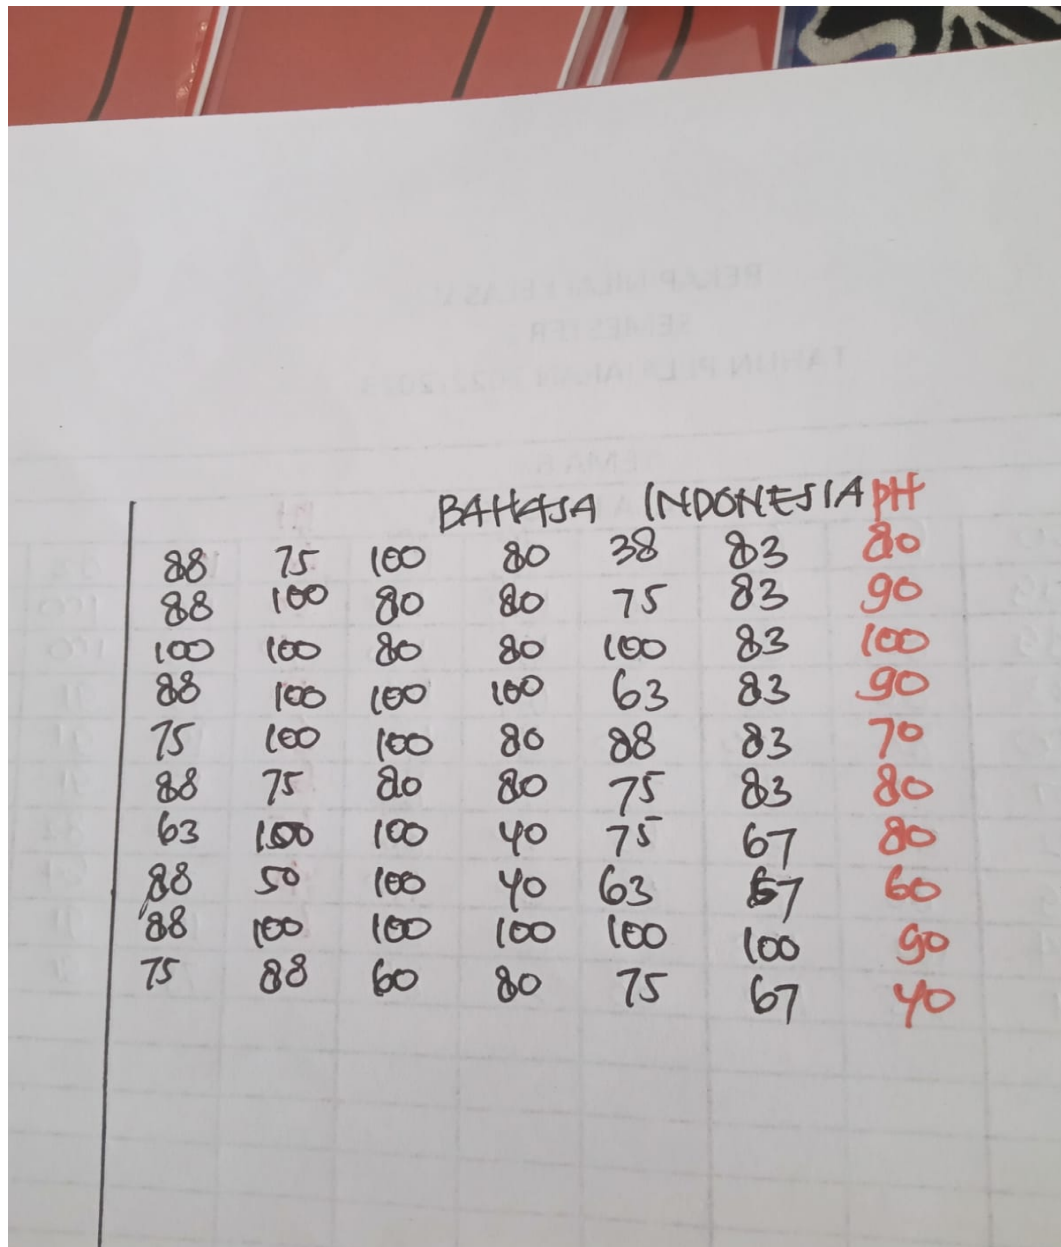 BAHASA INDONESIA PH
88 75 100 80 38 83 80
88 100 80 80 75 83 90
100 100 80 80 100 83 100
88 100 100 100 63 83 90
75 100 100 80 88 83 70
88 75 80 80 75 83 80
63 100 100 40 75 67 80
88 50 100 40 63 67 60
88 100 100 100 100 100 90
75 88 60 80 75 67 40